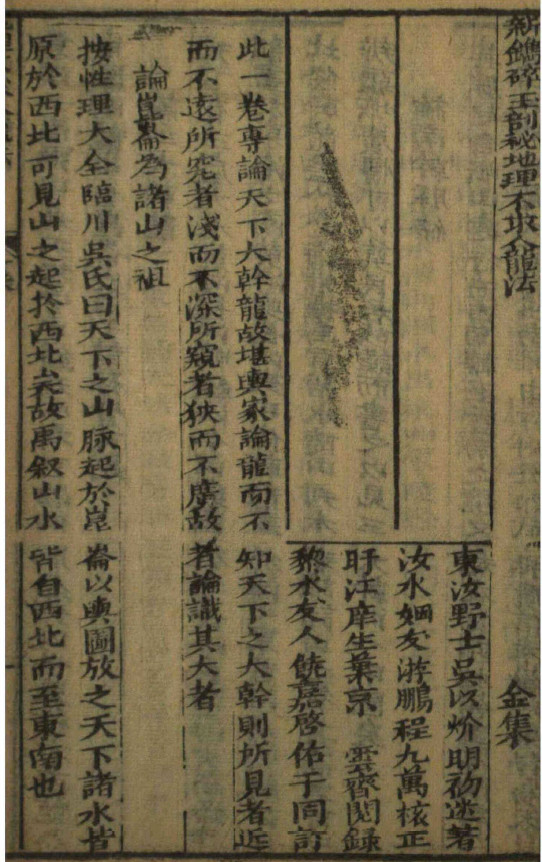 新鐫碎玉剖秘地理不求人龍法 金集
東汝野士吳以明初述著
汝水姻友游鵬程九萬核正
旴江庠生葉京 雲齋閱錄
黎水友人饒嘉啓佑于同訂
此一卷專論天下大幹龍故堪輿家論龍而不知天下之大幹則所見者近
而不遠所究者淺而不深所窺者狹而不廣故者論識其大者
論崑崙為諸山之祖
按性理大全臨川吳氏曰天下之山脉起於崑崙以輿圖放之天下諸水皆
原於西北可見山之起於西北矣故禹叙山水皆自西北而至東南也